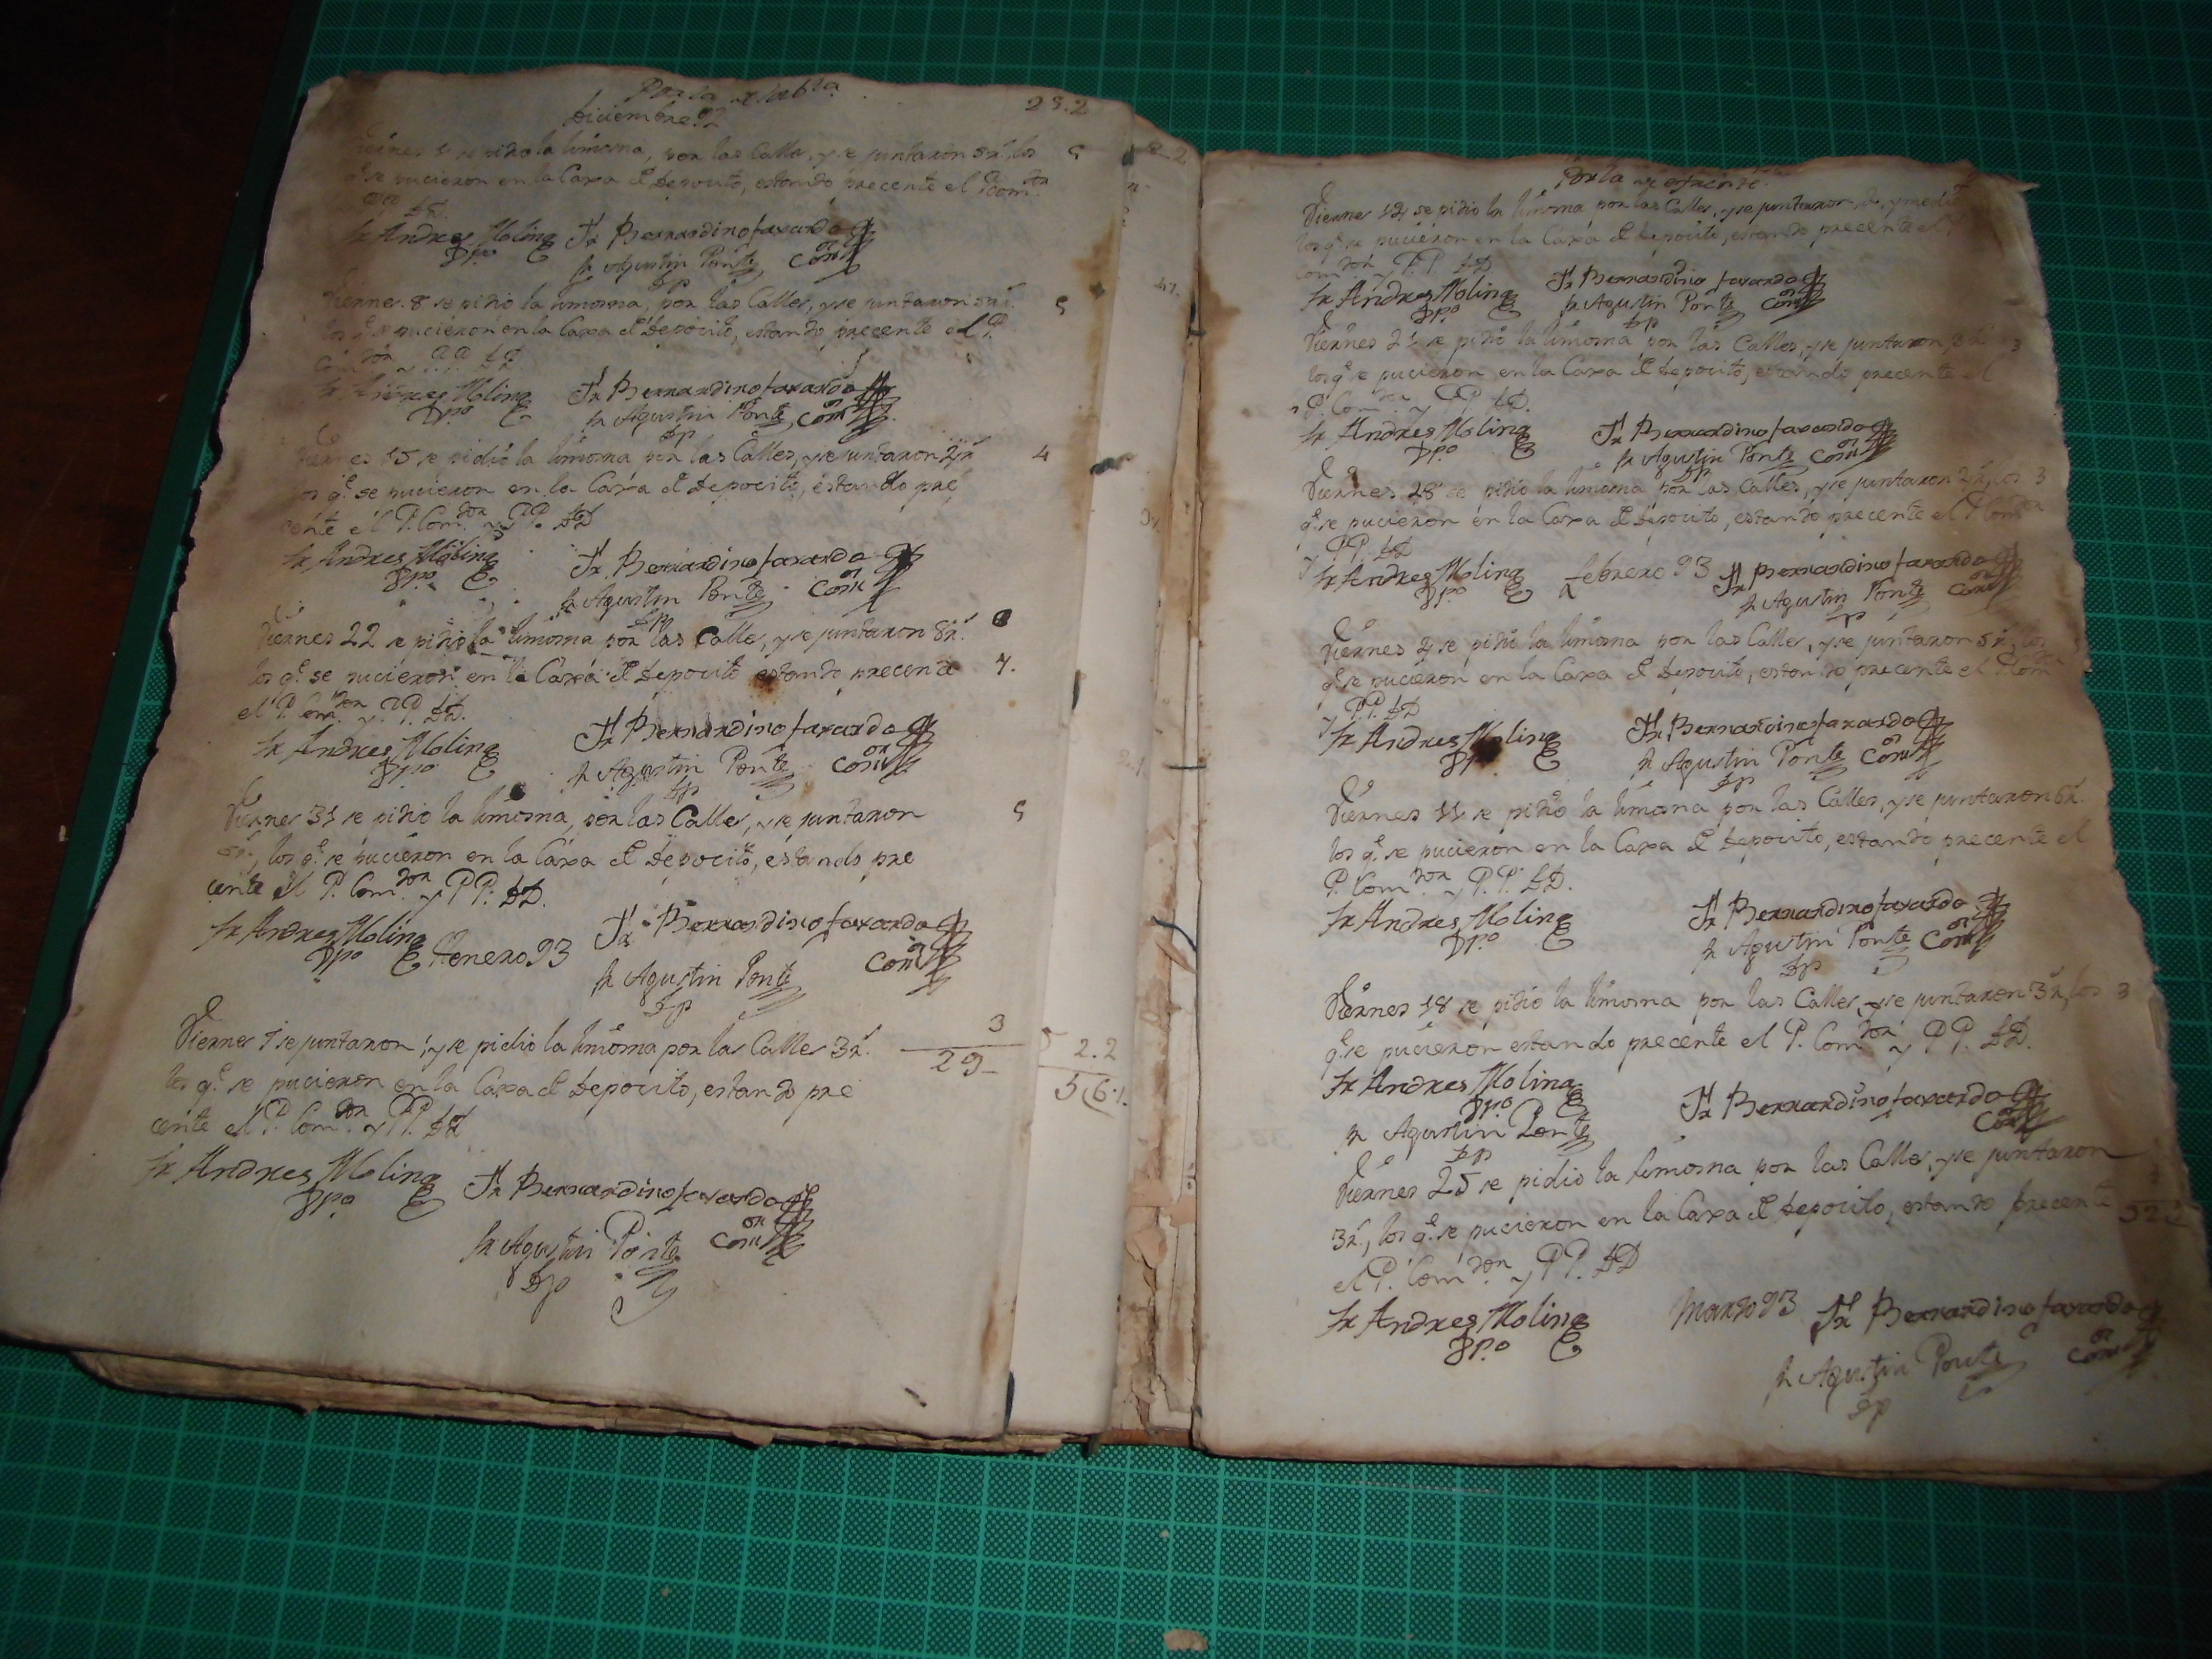 Por la
Diciembre 92
29.2
Viernes 1 se pidio la limosna, por las Calles, y se juntaron 5 r.s, los
5
q.e se pucieron en la Caxa de Deposito, estando precente el P. Com.dor
Fr Andres Molina
Fr Bernardino faxardo
Ppo
Com.or
fr Agustin Ponte
Dp
Viernes 8 se pidio la limosna, por las Calles, y se juntaron 5 r.s
5
los q.e se pucieron en la Caxa de Deposito, estando precente el P.
Com.dor y PP. DD
Fr Andres Molina
Fr Bernardino faxardo
Ppo
fr Agustin Ponte Com.or
Dp
Viernes 15 se pidio la limosna por las Calles, y se juntaron 4 r.s
4
los q.e se pucieron en la Caxa de Deposito, estando pre
cente el P. Com.dor y PP. DD
Fr Andres Molina
Fr Bernardino faxardo
Ppo
fr Agustin Ponte Com.or
Dp
Viernes 22 se pidio la limosna por las Calles, y se juntaron 8 r.s
los q.e se pucieron en la Caxa de Deposito estando precente
7.
el P. Com.dor y PP. DD.
Fr Andres Molina
Fr Bernardino faxardo
Ppo
fr Agustin Ponte Com.or
Dp
Viernes 31 se pidio la limosna, por las Calles, y se juntaron
5
5 r.s, los q.e se pucieron en la Caxa de Deposito, estando pre
cente el P. Com.dor y PP. DD.
Fr Andres Molina
Henero 93
Fr Bernardino faxardo
Ppo
fr Agustin Ponte
Com.or
Dp
3
Viernes 7 se juntaron, y se pidio la limosna por las Calles 3 r.s
29
2.2
los q.e se pucieron en la Caxa de Deposito, estando pre
56.1.
cente el P. Com.dor y PP. DD
Fr Andres Molina
Fr Bernardino faxardo
Ppo
fr Agustin Ponte
Com.or
Dp
Por la
Viernes 14 se pidio la limosna por las Calles, y se juntaron, dos, y medio
los q.e se pucieron en la Caxa de Deposito, estando precente el P.
Com.dor y P.P. DD
Fr Andres Molina
Fr Bernardino faxardo
Ppo
fr Agustin Ponte Com.or
Dp
Viernes 21 se pidio la limosna por las Calles, y se juntaron, 3 r.s
3
los q.e se pucieron en la Caxa de Deposito, estando precente el
P. Com.dor y PP DD.
Fr Andres Molina
Fr Bernardino faxardo
Ppo
fr Agustin Ponte Com.or
Dp
Viernes 28 se pidio la limosna por las Calles, y se juntaron los
3
q.e se pucieron en la Caxa de Deposito, estando precente el P. Com.dor
y PP. DD
Fr Andres Molina
febrero 93
Fr Bernardino faxardo
Ppo
fr Agustin Ponte Com.or
Dp
Viernes 4 se pidio la limosna por las Calles, y se juntaron 5 r.s, los
q.e se pucieron en la Caxa de Deposito, estando precente el P. Com.
y PP. DD
Fr Andres Molina
Fr Bernardino faxardo
Ppo
fr Agustin Ponte Com.or
Dp
Viernes 11 se pidio la limosna por las Calles, y se juntaron 6 r.s
los q.e se pucieron en la Caxa de Deposito, estando precente el
P. Com.dor y P.P. DD.
Fr Andres Molina
Fr Bernardino faxardo
Ppo
fr Agustin Ponte Com.or
Dp
Viernes 18 se pidio la limosna por las Calles, y se juntaron 3 r.s, los
3
q.e se pucieron estando precente el P. Com.dor y PP. DD.
Fr Andres Molina
Fr Bernardino faxardo
Ppo
Com.or
fr Agustin Ponte
Dp
Viernes 25 se pidio la limosna por las Calles, y se juntaron
3 r.s, los q.e se pucieron en la Caxa de Deposito, estando precente
el P. Com.dor y PP. DD
Fr Andres Molina
Marzo 93
Fr Bernardino faxardo
Ppo
fr Agustin Ponte
Com.or
Dp